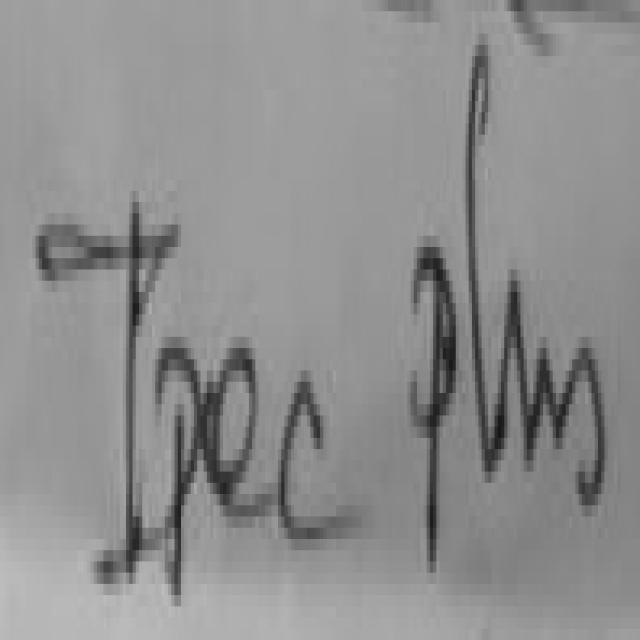 Ipec plus